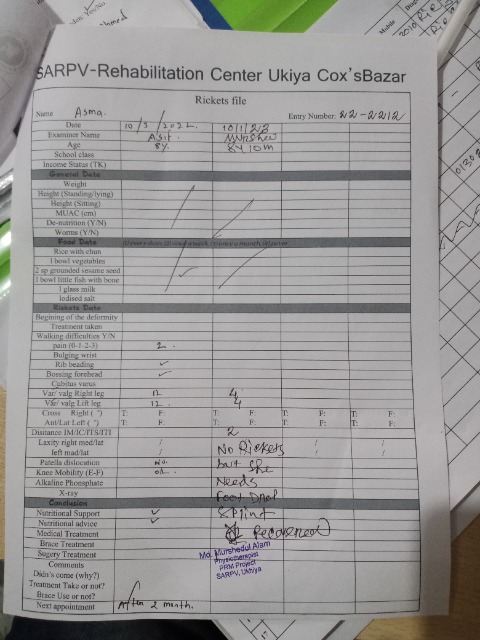 SARPV-Rehabilitation Center Ukiya Cox'sBazar
Rickets file
Name Asma. Entry Number: 22-2212
Date 10/3/2022. 10/1/23
Examiner Name Asit.
Age 8y. 8y 10m
School class
Income Status (TK)
General Data
Weight
Height (Standing/lying)
Height (Sitting)
MUAC (cm)
De-nutrition (Y/N)
Worms (Y/N)
Food Data
Rice with chun
1 bowl vegetables
2 sp grounded sesame seed ✓
1 bowl little fish with bone
1 glass milk
Iodised salt
Rickets Data
Begining of the deformity
Treatment taken
Walking difficulties Y/N
pain (0-1-2-3) 2.
Bulging wrist
Rib beading ✓
Bossing forehead ✓
Cubitus varus
Var/ valg Right leg 12 4
Var/ valg Left leg 12. 4
Cross Right (°) T: F: T: F: T: F: T: F:
Ant/Lat Left (°) T: F: T: F: T: F: T: F:
Distance IM/IC/ITS/ITI 2
Laxity right med/lat / No Rickets / /
left med/lat / but she / /
Patella dislocation No.
Knee Mobility (E-F) ok. Needs
Alkaline Phosphate
X-ray Foot Drop
Conclusion
Nutritional Support ✓ Splint
Nutritional advice ✓
Medical Treatment Recovered
Brace Treatment
Sugery Treatment
Comments
Didn's come (why?)
Treatment Take or not?
Brace Use or not?
Next appointment After 2 month.
Md. Murshedul Alam
Physiotherapist
PRM Project
SARPV, Ukhiya